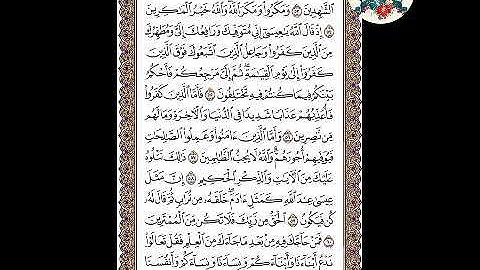 الشَّٰهِدِينَ ۝٥٣ وَمَكَرُوا۟ وَمَكَرَ ٱللَّهُ وَٱللَّهُ خَيْرُ ٱلْمَٰكِرِينَ
۝٥٤ إِذْ قَالَ ٱللَّهُ يَٰعِيسَىٰٓ إِنِّى مُتَوَفِّيكَ وَرَافِعُكَ إِلَىَّ وَمُطَهِّرُكَ
مِنَ ٱلَّذِينَ كَفَرُوا۟ وَجَاعِلُ ٱلَّذِينَ ٱتَّبَعُوكَ فَوْقَ ٱلَّذِينَ
كَفَرُوٓا۟ إِلَىٰ يَوْمِ ٱلْقِيَٰمَةِ ثُمَّ إِلَىَّ مَرْجِعُكُمْ فَأَحْكُمُ
بَيْنَكُمْ فِيمَا كُنتُمْ فِيهِ تَخْتَلِفُونَ ۝٥٥ فَأَمَّا ٱلَّذِينَ كَفَرُوا۟
فَأُعَذِّبُهُمْ عَذَابًا شَدِيدًا فِى ٱلدُّنْيَا وَٱلْءَاخِرَةِ وَمَا لَهُم
مِّن نَّٰصِرِينَ ۝٥٦ وَأَمَّا ٱلَّذِينَ ءَامَنُوا۟ وَعَمِلُوا۟ ٱلصَّٰلِحَٰتِ
فَيُوَفِّيهِمْ أُجُورَهُمْ وَٱللَّهُ لَا يُحِبُّ ٱلظَّٰلِمِينَ ۝٥٧ ذَٰلِكَ نَتْلُوهُ
عَلَيْكَ مِنَ ٱلْءَايَٰتِ وَٱلذِّكْرِ ٱلْحَكِيمِ ۝٥٨ إِنَّ مَثَلَ
عِيسَىٰ عِندَ ٱللَّهِ كَمَثَلِ ءَادَمَ خَلَقَهُۥ مِن تُرَابٍ ثُمَّ قَالَ لَهُۥ
كُن فَيَكُونُ ۝٥٩ ٱلْحَقُّ مِن رَّبِّكَ فَلَا تَكُن مِّنَ ٱلْمُمْتَرِينَ
۝٦٠ فَمَنْ حَآجَّكَ فِيهِ مِنۢ بَعْدِ مَا جَآءَكَ مِنَ ٱلْعِلْمِ فَقُلْ تَعَالَوْا۟
نَدْعُ أَبْنَآءَنَا وَأَبْنَآءَكُمْ وَنِسَآءَنَا وَنِسَآءَكُمْ وَأَنفُسَنَا